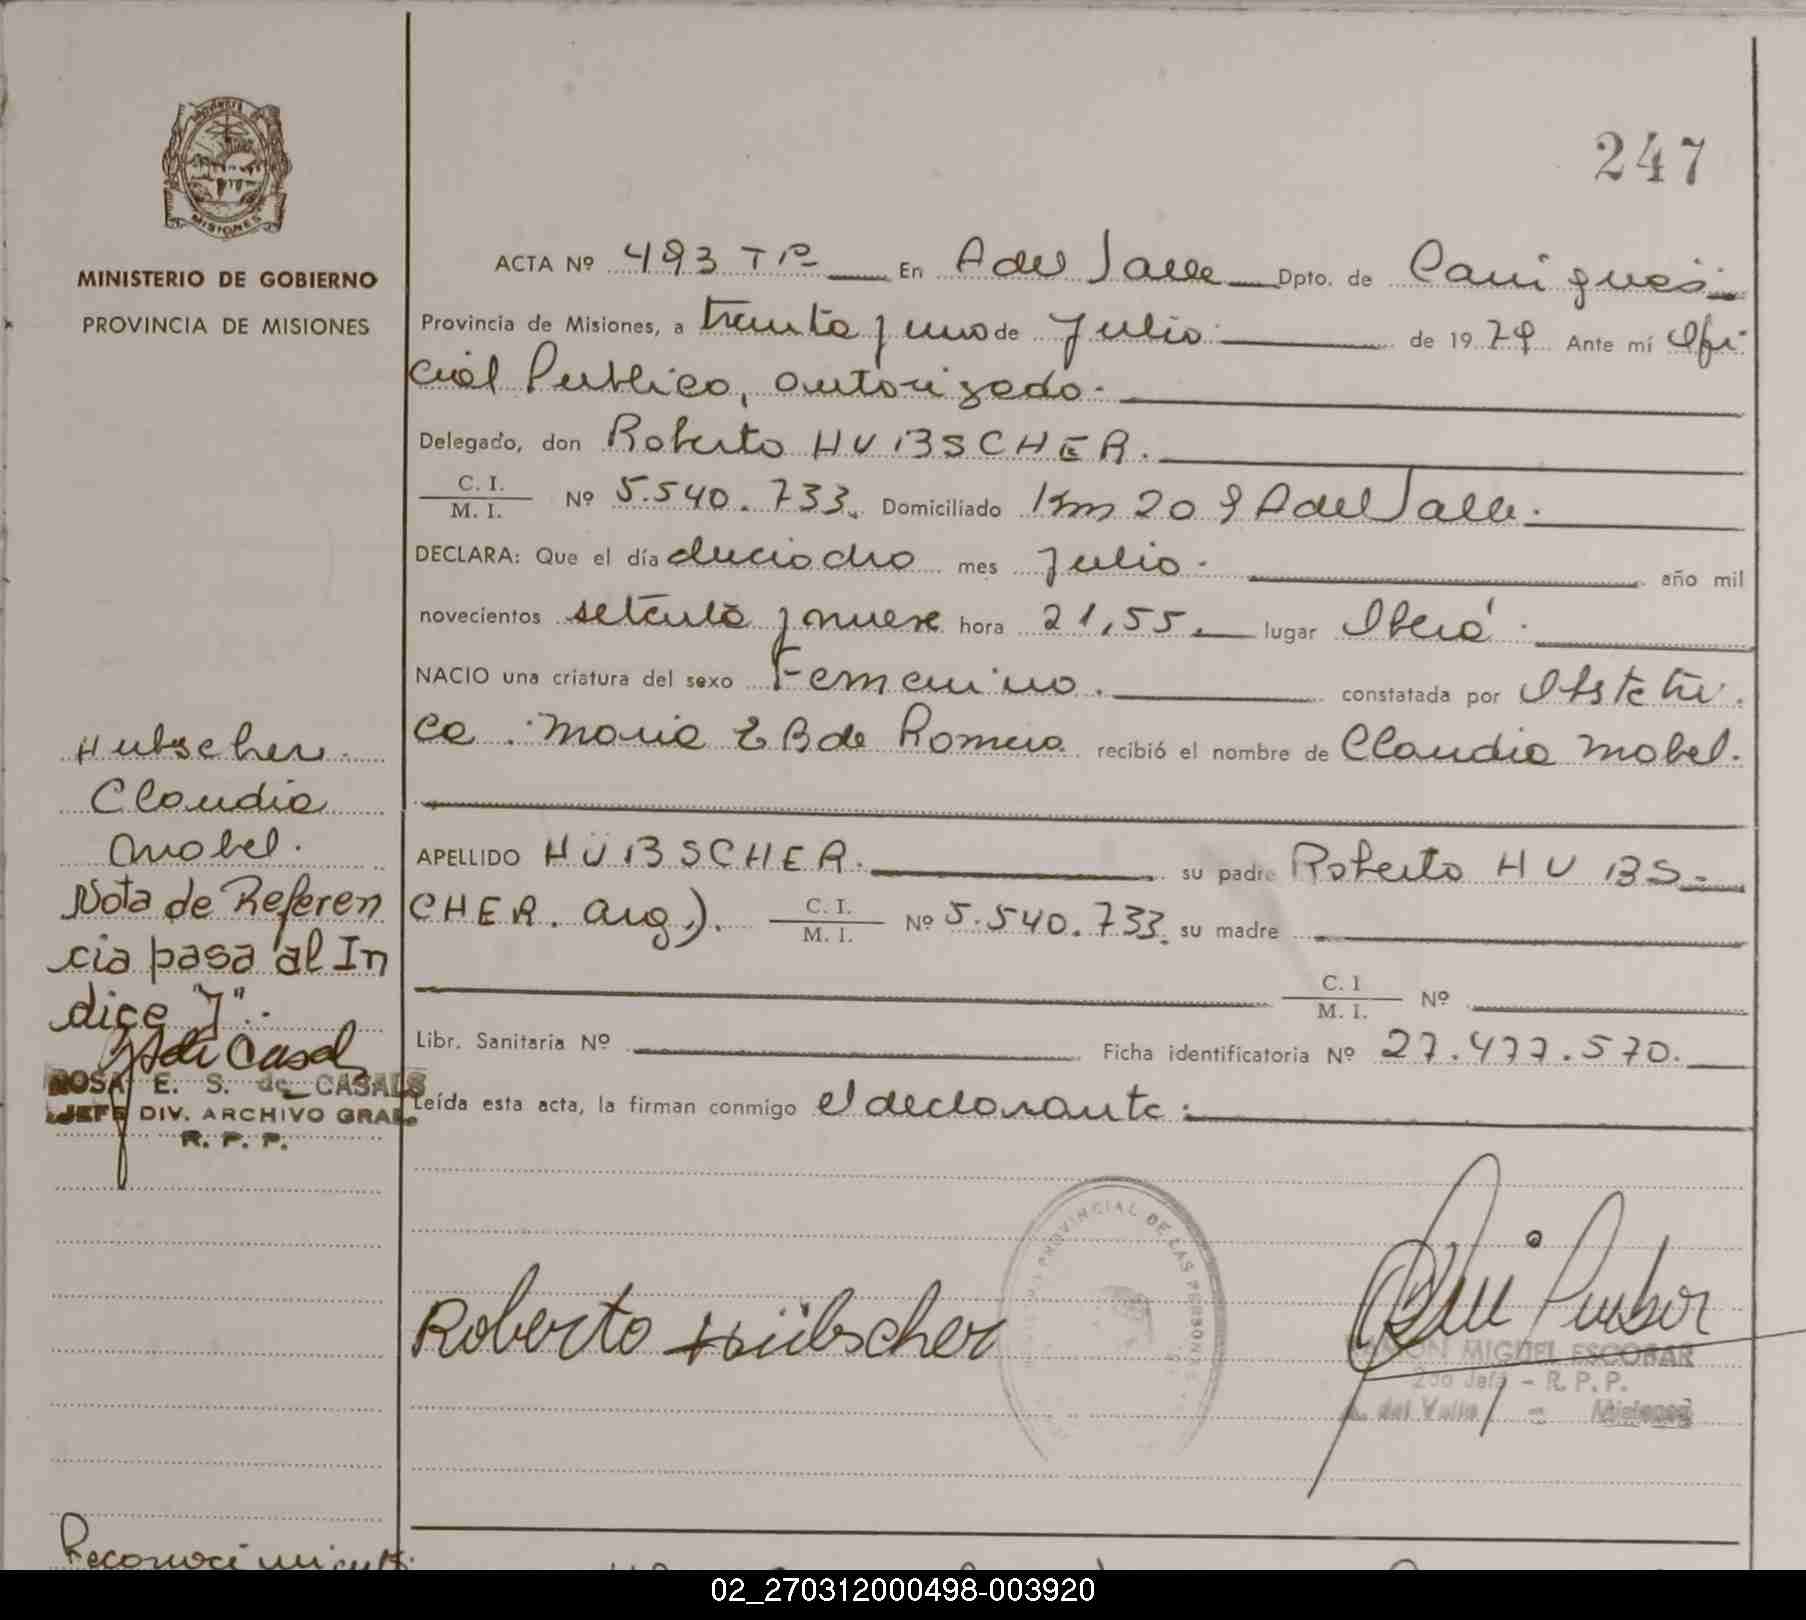 247
PROVINCIA DE
MISIONES
MINISTERIO DE GOBIERNO
PROVINCIA DE MISIONES
ACTA Nº 493 Tº En A del Valle Dpto. de Cainguás
Provincia de Misiones, a treinta y uno de Julio de 1979 Ante mí Ofi
cial Publico, autorizado.
Delegado, don Roberto HUBSCHER.
C. I.
M. I. Nº 5.540.733. Domiciliado Km 209 A del Valle.
DECLARA: Que el día dieciocho mes Julio. año mil
novecientos setenta y nueve hora 21,55 lugar Oberá.
NACIO una criatura del sexo Femenino. constatada por Obstetri
ca: Maria E B de Romero recibió el nombre de Claudia Mabel.
APELLIDO HÜBSCHER. su padre Roberto HUBS-
CHER. arg). C. I.
M. I. Nº 5.540.733. su madre
C. I
M. I. Nº
Libr. Sanitaria Nº Ficha identificatoria Nº 27.477.570.
Leída esta acta, la firman conmigo el declarante:
Hubscher.
Claudia
Mabel.
Nota de Referen
cia pasa al In
dice "J".
ROSA E. S. de CASALS
JEFE DIV. ARCHIVO GRAL.
R. P. P.
Roberto Hübscher
PROVINCIAL DE LAS PERSONAS
RAMON MIGUEL ESCOBAR
2do Jefe - R. P. P.
A. del Valle - Misiones
Reconocimiento
02_270312000498-003920